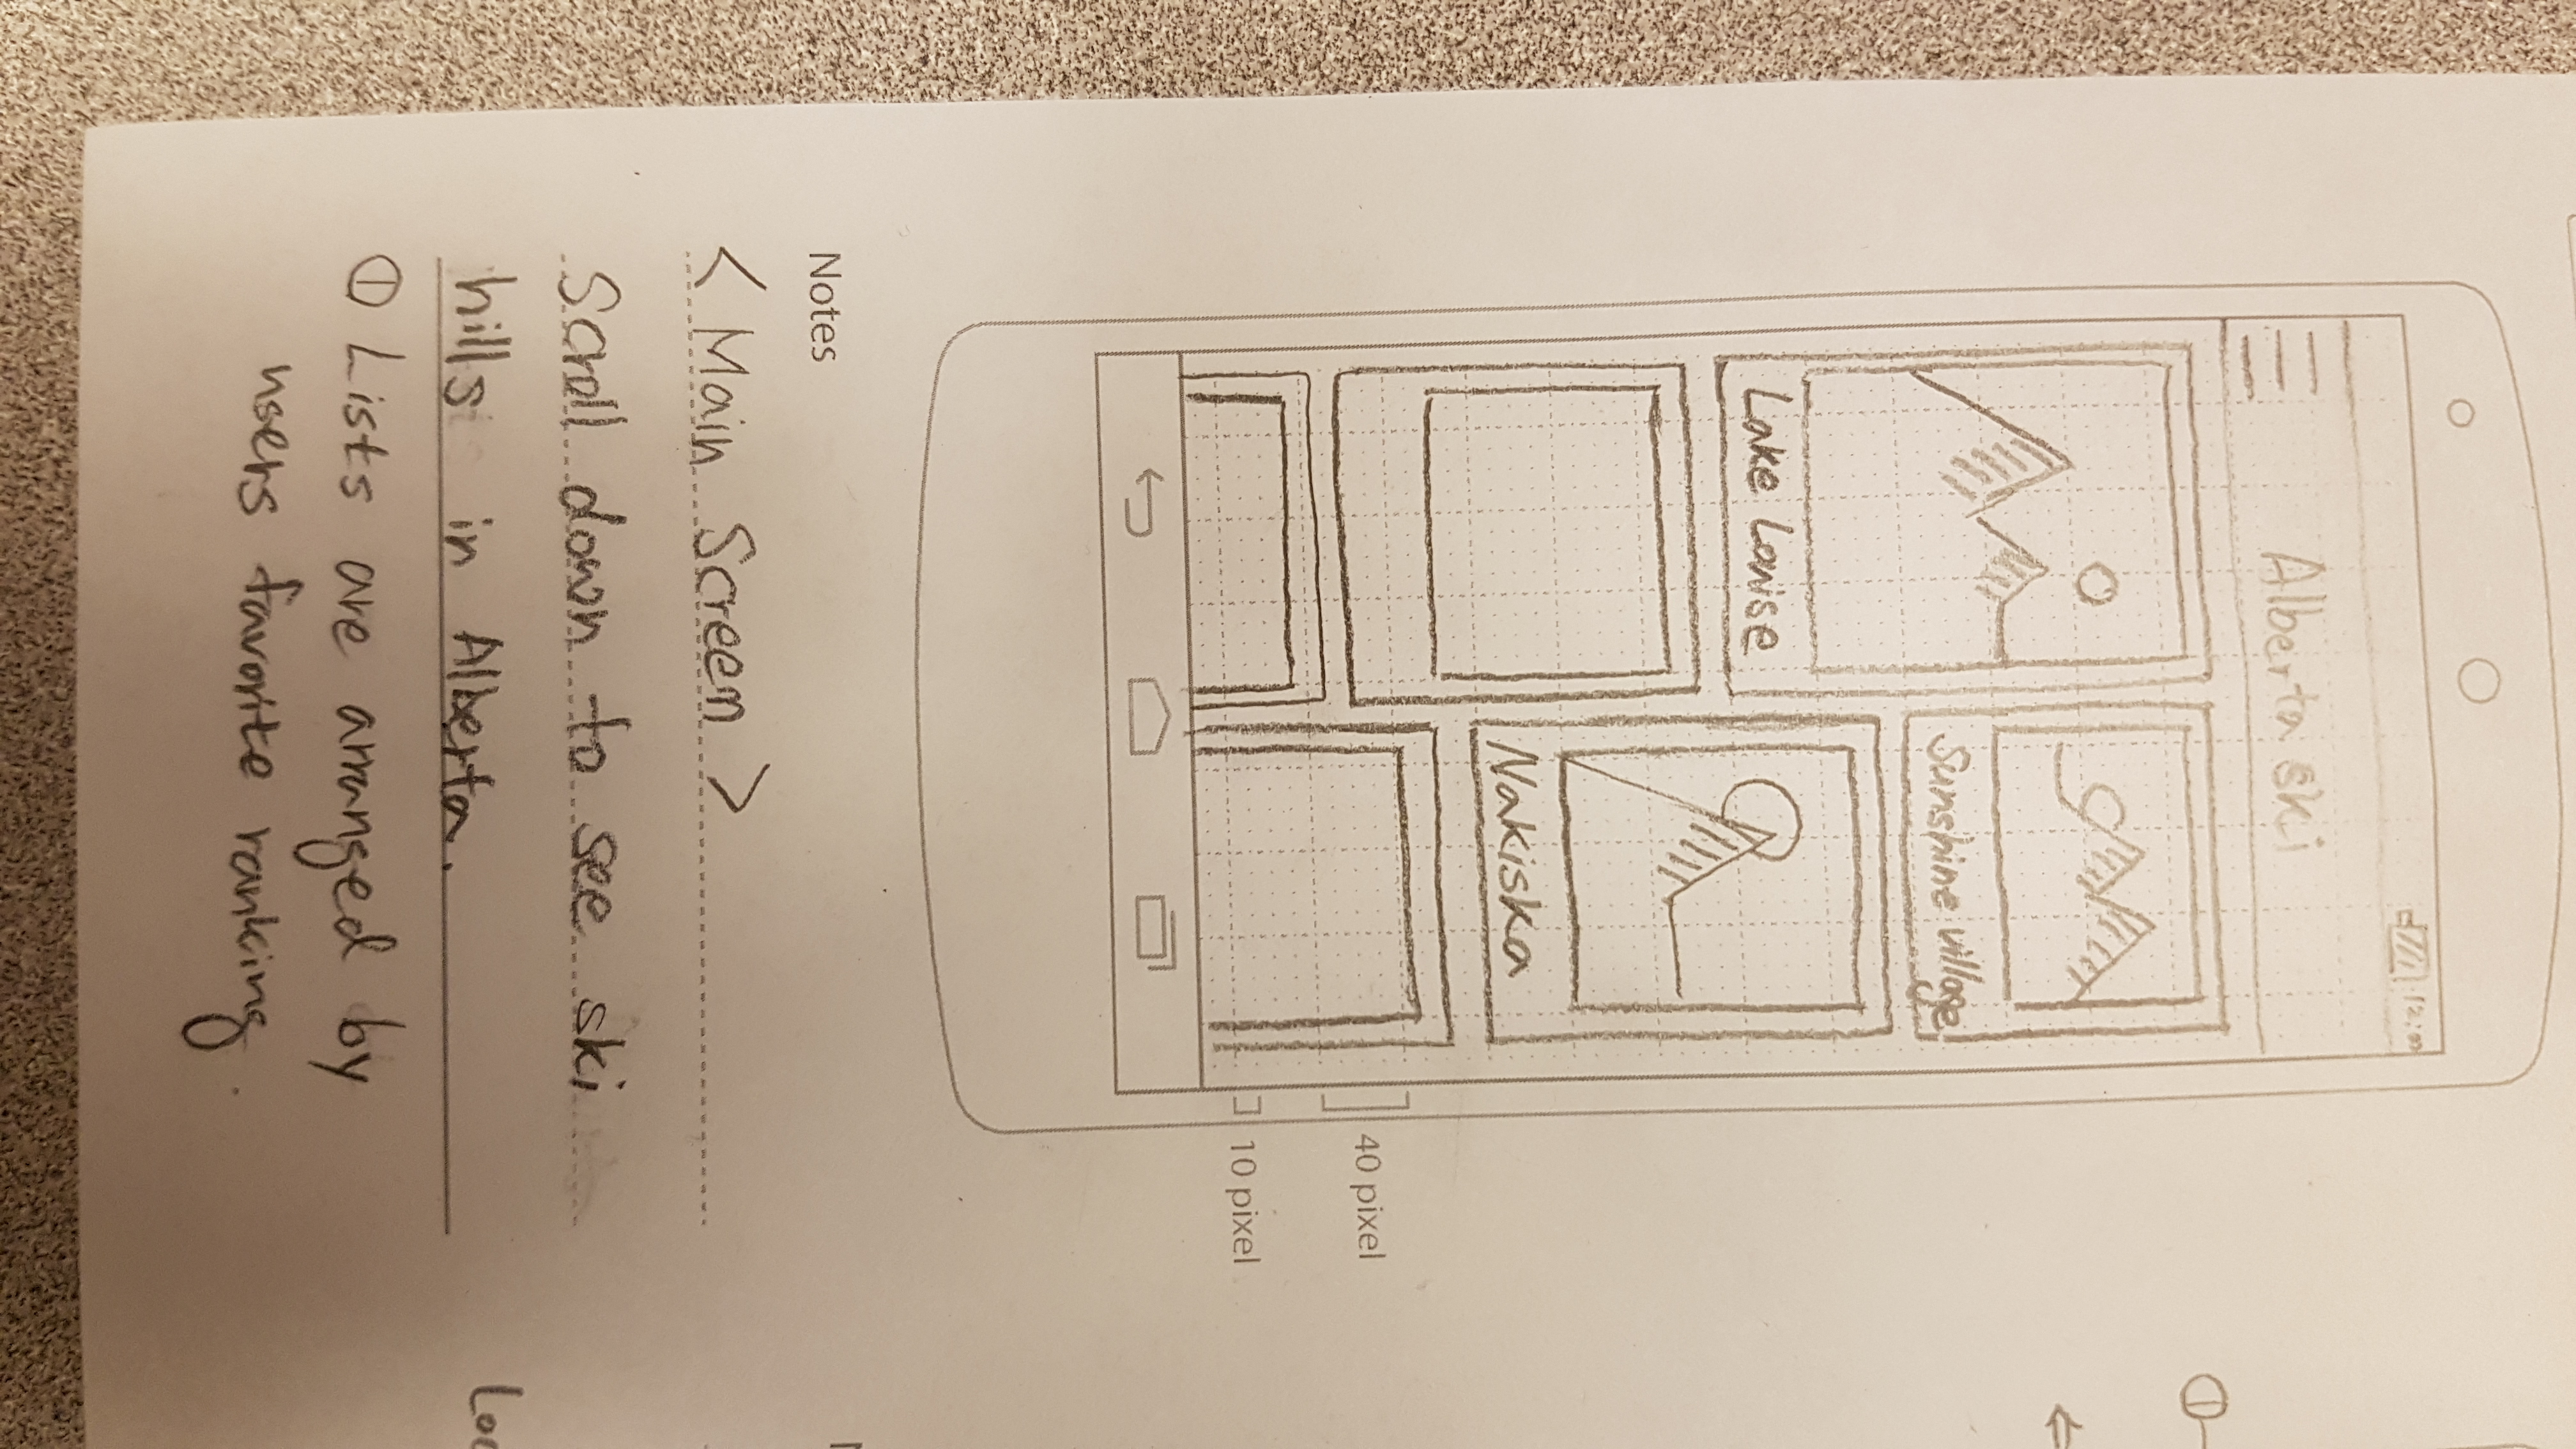 12:00
Alberta ski
Sunshine village
Lake Louise
Nakiska
40 pixel
10 pixel
Notes
< Main Screen >
Scroll down to see ski
hills in Alberta.
① Lists are arranged by
users favorite ranking.
Loc